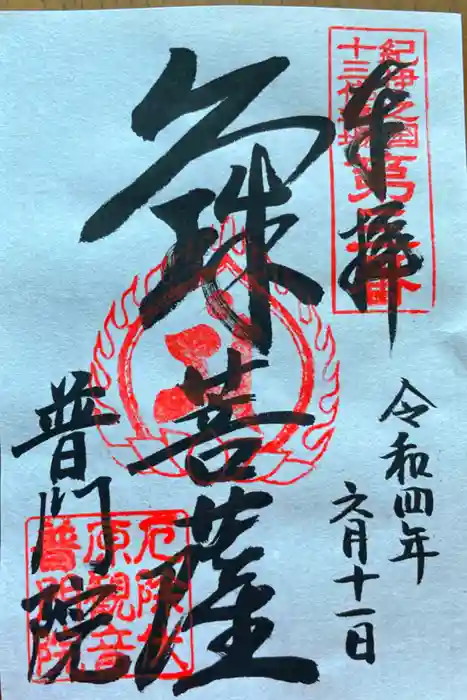 奉拝
紀伊之国
十三仏霊場
第
番
文殊菩薩
令和四年
六月十一日
普門院
厄除伏
原観音
普門院